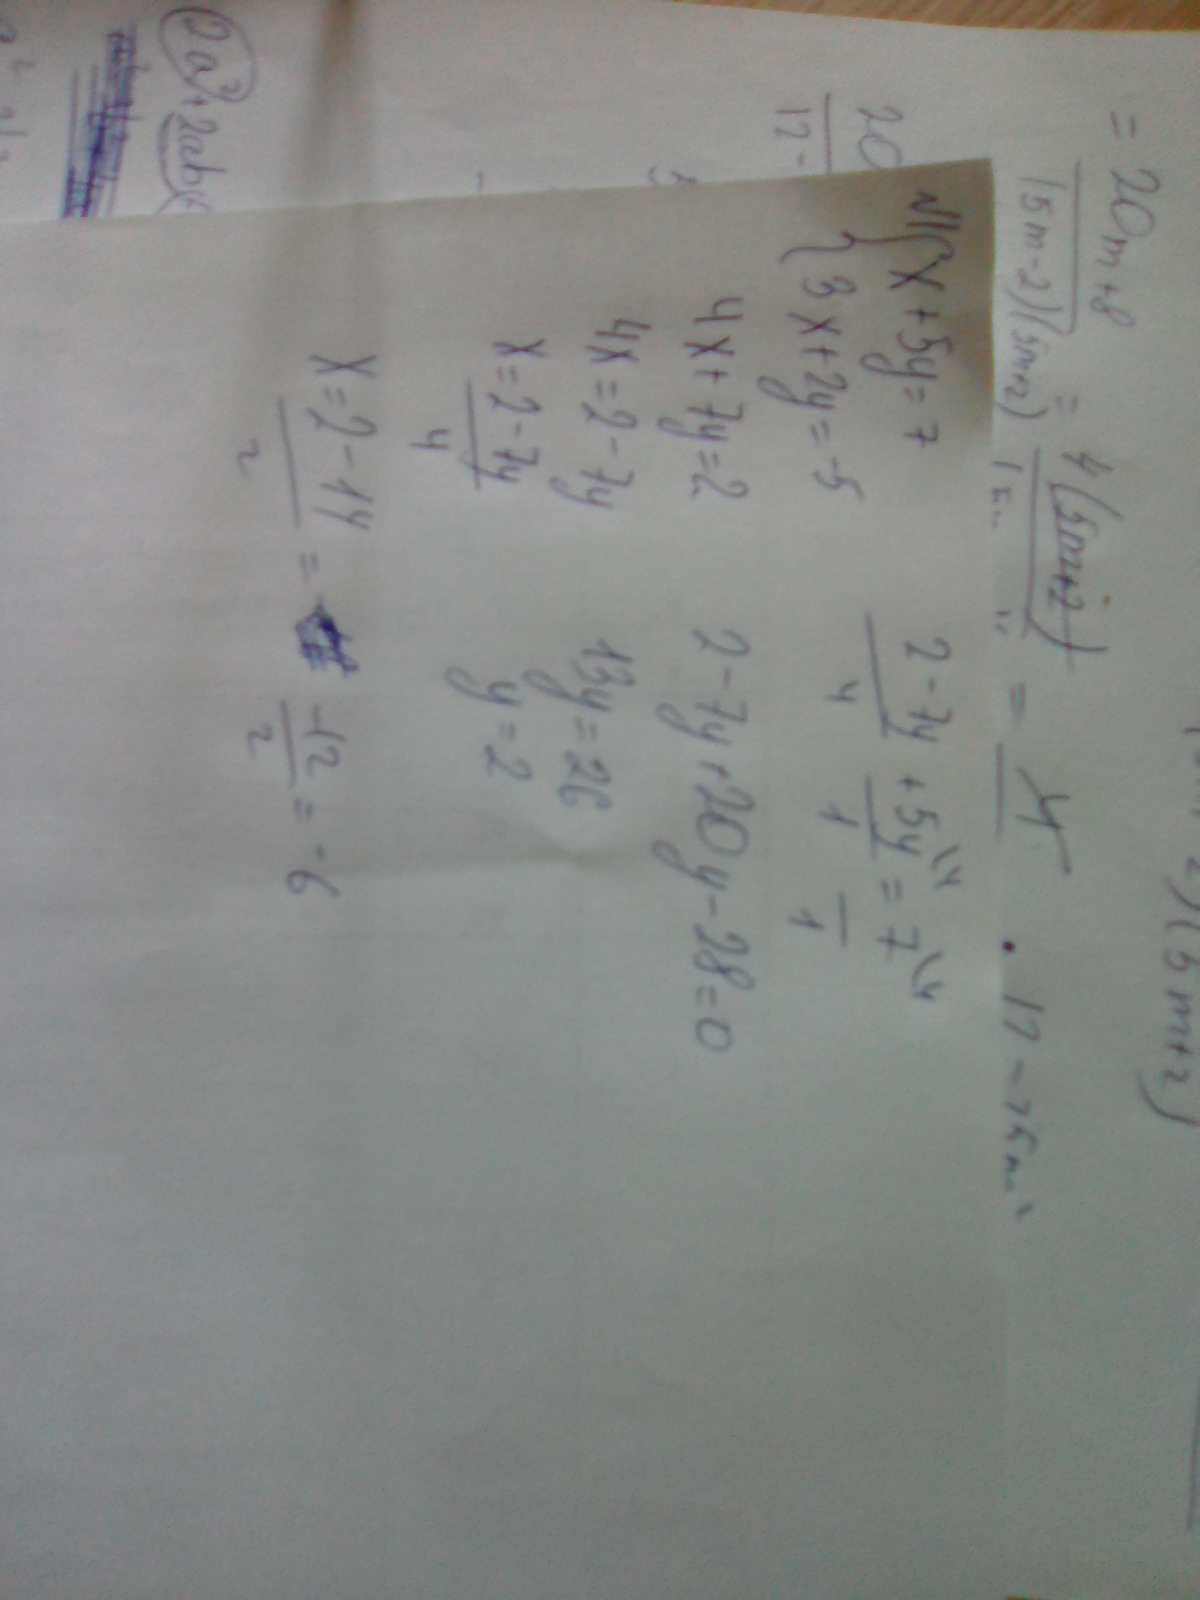 = 20m+8 / (5m-2)(5m+2) = 4(5m+2) / = 4 / · 17
2)(5m+2)
20
12-
N1 { x+5y=7
3x+2y=-5
4x+7y=2
4x=2-7y
x=2-7y / 4
2-7y / 4 + 5y\4 / 1 = 7\4 / 1
2-7y+20y-28=0
13y=26
y=2
x=2-14 / 2 = -12 / 2 = -6
2a²+2ab